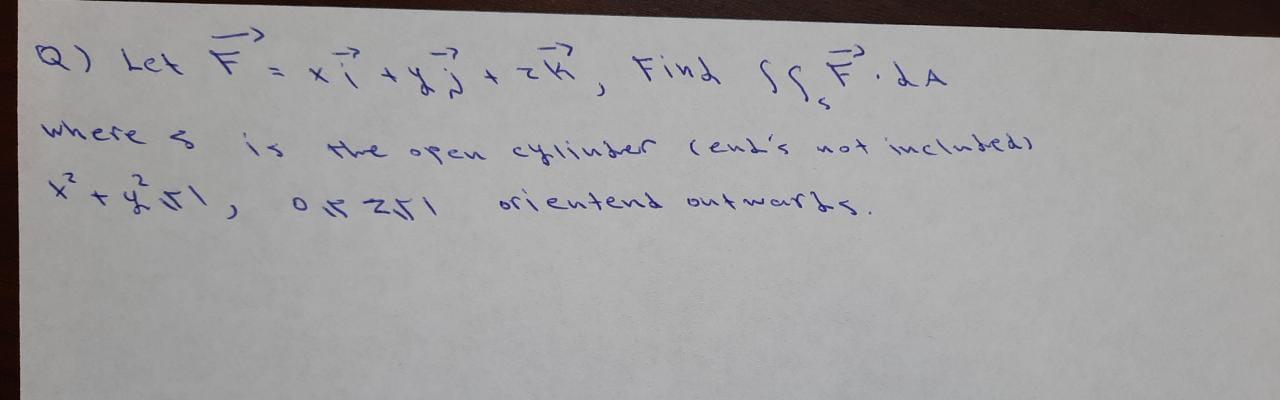 Q) Let F⃗ = x i⃗ + y j⃗ + z k⃗, Find ∫∫ₛ F⃗ · dA
where s is the open cylinder (end's not included)
x² + y² ≤ 1, 0 ≤ z ≤ 1 orientend outwards.